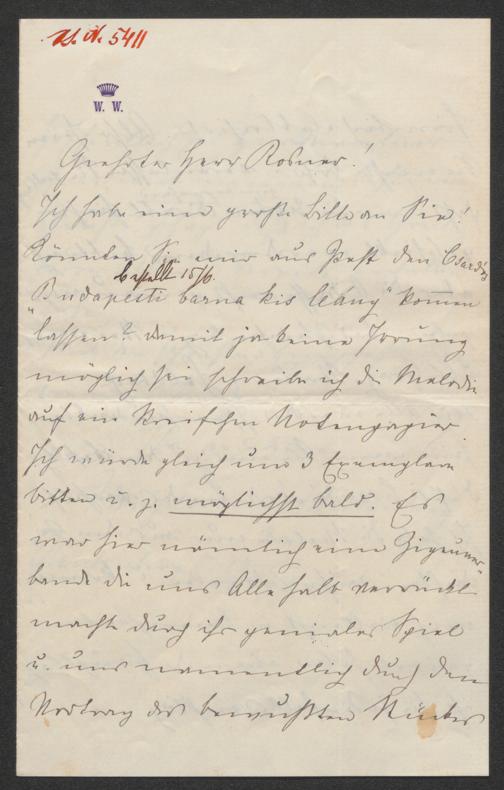 I. N. 5411
W. W.
Geehrter Herr Rosner!
Ich habe eine große Bitte an Sie!
Könnten Sie mir aus Pest den Csárdás
bestellt 15/6.
"Budapesti barna kis leány" kommen
lassen? damit ja keine Irrung
möglich sei schreibe ich die Melodie
auf ein Streifchen Notenpapier.
Ich würde gleich um 3 Exemplare
bitten u. z. möglichst bald. Es
war hier nämlich eine Zigeuner-
bande die uns Alle halb verrückt
machte durch ihr geniales Spiel
u. uns namentlich durch den
Vortrag des bewußten Stückes